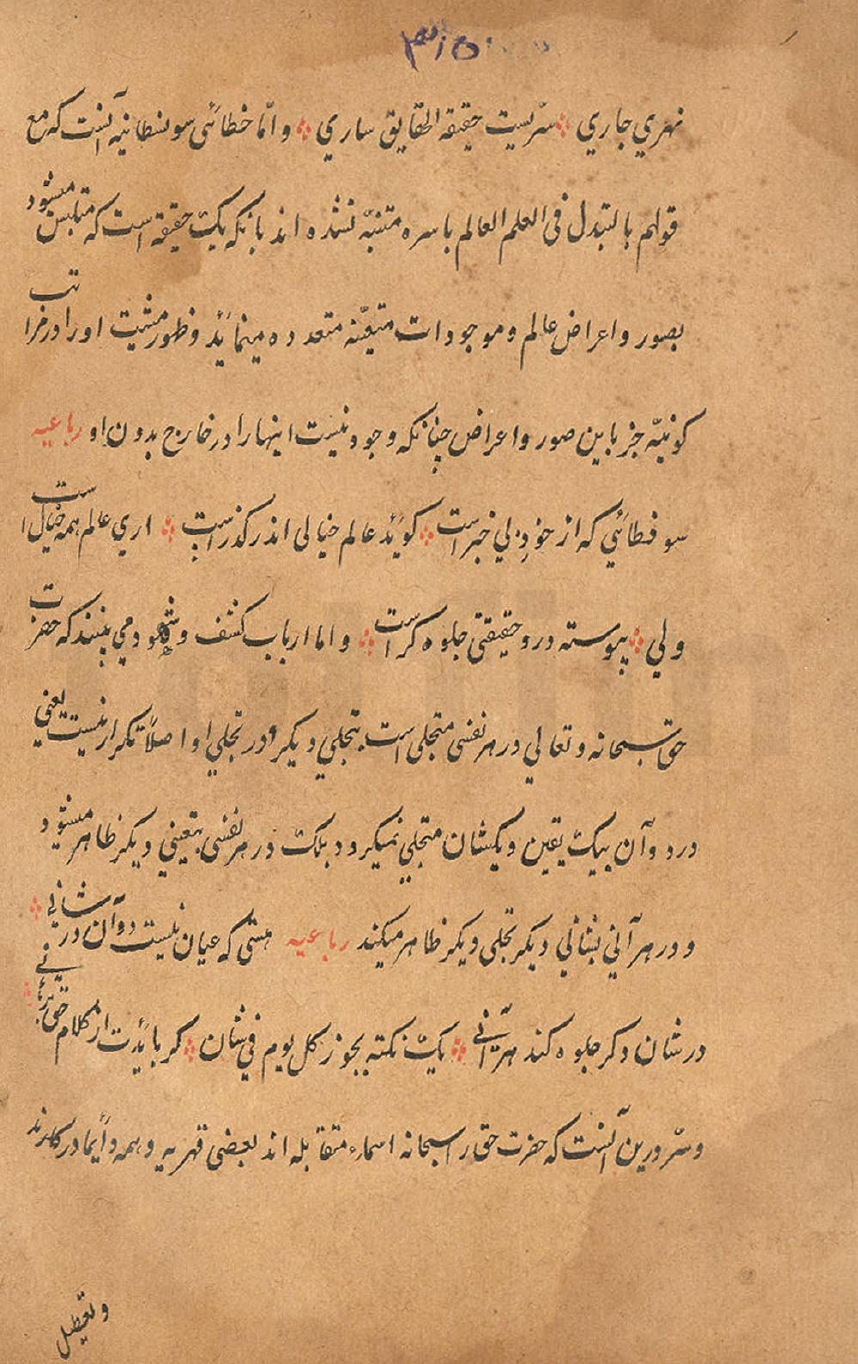 ۳۱۵۰
نهري جاري سرّیست حقیقة الحقایق ساري و امّا خطائی سوفسطائیه آنست که مع
قولهم بالتبدل فی العلم العالم باسره متنبّه نشده اند بانکه یک حقیقة است که متلبس میشود
بصور و اعراض عالم و موجودات متعیّنه متعدده مینماید و ظهور نیست او را در مراتب
کونیّه جز باین صور و اعراض چنانکه وجود نیست اینها را در خارج بدون او رباعیه
سوفسطائي که از خود بي خبر است کوید عالم خیالی اندر کذر است اري عالم همه خیال است
ولي پیوسته درو حقیقتی جلوه کر است و اما ارباب کشف و شهود می بینند که حضرت
حق سبحانه و تعالي در هر نفسی متجلی است بتجلي دیکر و در تجلي او اصلاً تکرار نیست یعني
در دو آن بیک یقین و یکشان متجلي نمیکردد بلک در هر نفسی بتعیني دیکر ظاهر میشود
و در هر آني بشاني دیکر تجلی دیکر ظاهر میکند رباعیه هستی که عیان نیست دو آن در شانی
در شان دکر جلوه کند هر آنے یک نکته بجوز کل یوم في شان کر بایدت از کلام حق برهانے
و سرّ درین آنست که حضرت حق را سبحانه اسماء متقابله اند بعضی قهریه و همه دأیما در کارند
و تعطیل